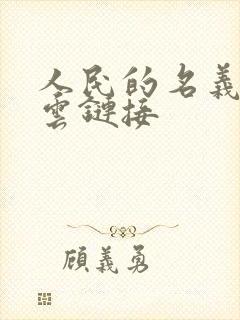 人民的名義
雲鏈接
顧義勇